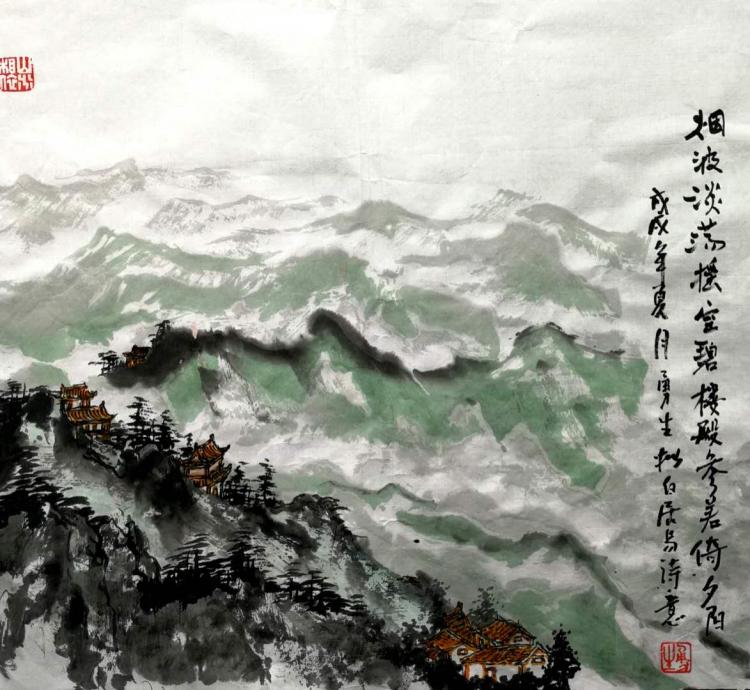 烟波淡荡摇空碧楼殿参差倚夕阳
戊戌年夏月勇生拟白居易诗意